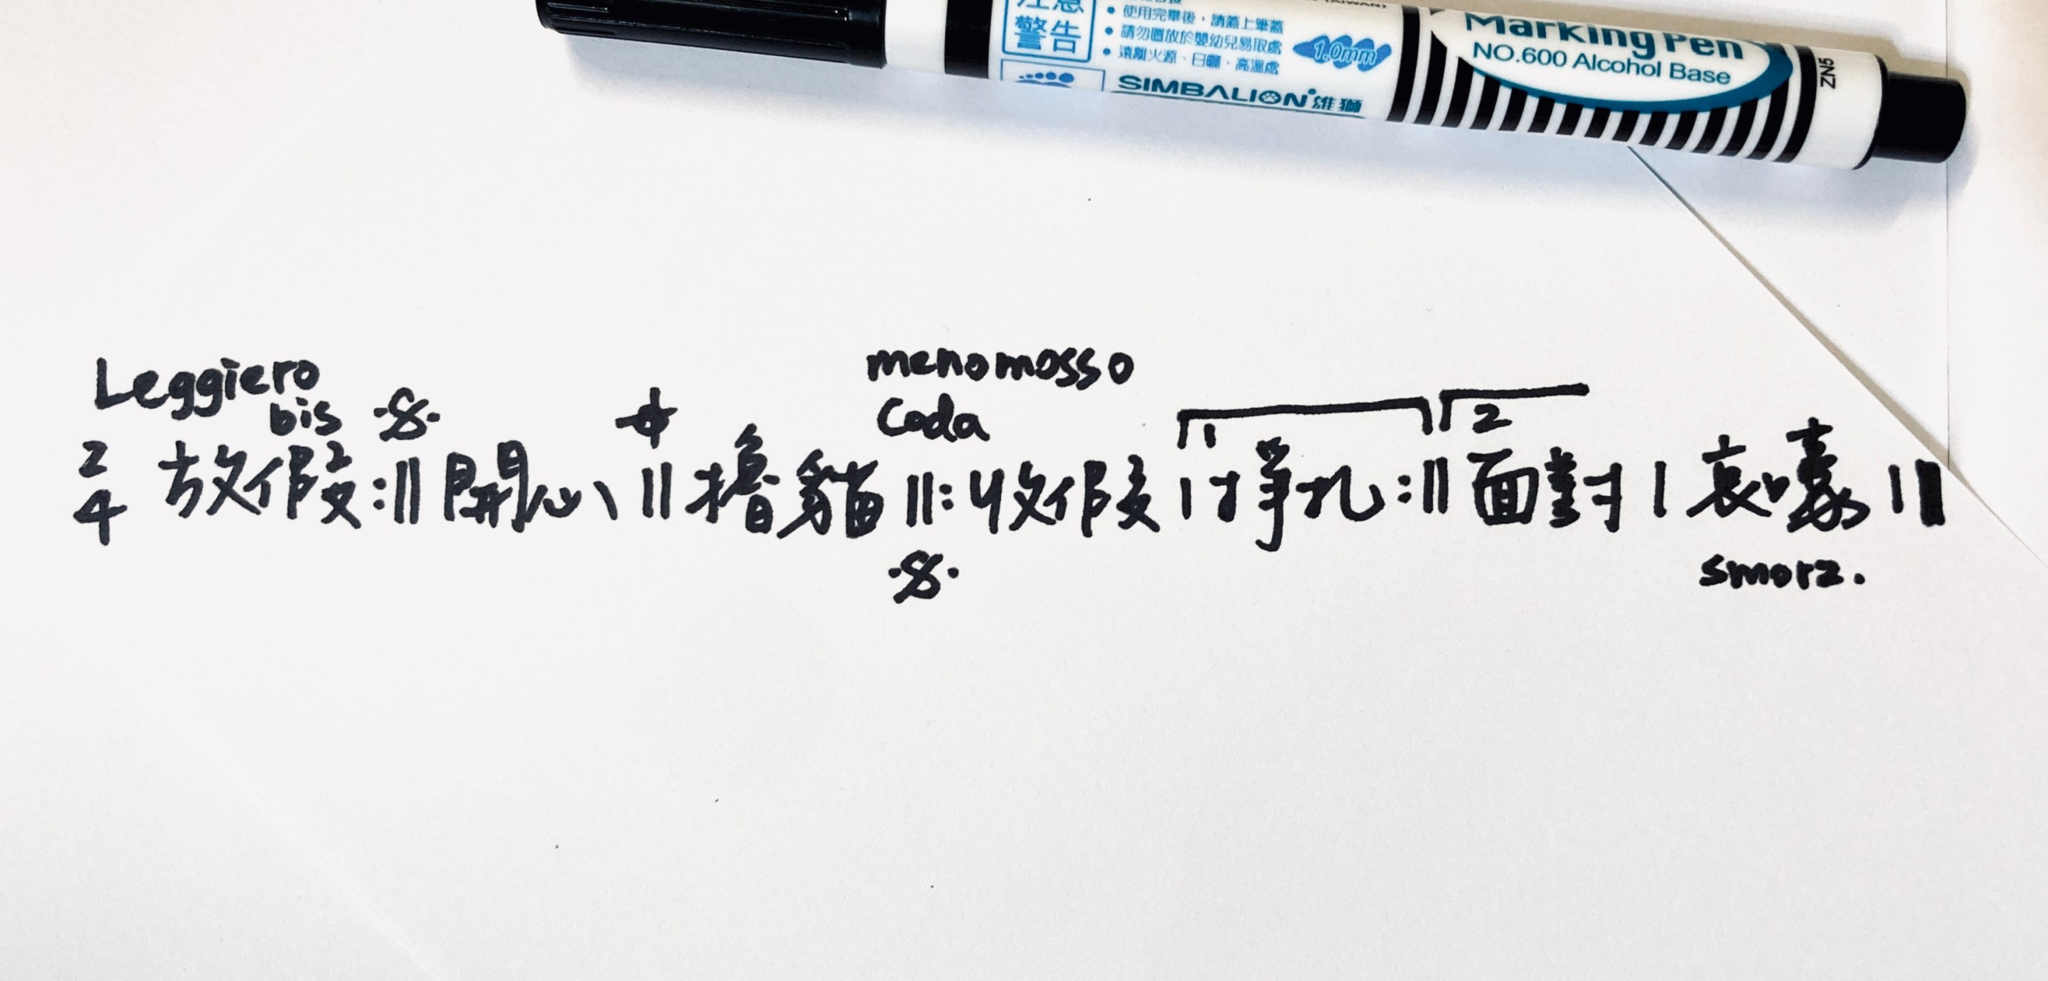 注意
警告
• 使用完畢後，請蓋上筆蓋
• 請勿置放於嬰幼兒易取處
• 遠離火源、日曬、高溫處
1.0mm
SIMBALION 雄獅
Marking Pen
NO.600 Alcohol Base
ZN5
Leggiero
bis 𝄋 𝄌
meno mosso
Coda
1 2
2/4 放假 :|| 開心 \ || 擼貓 ||: 收假 | 掙扎 :|| 面對 | 哀嚎 ||
𝄋
smorz.